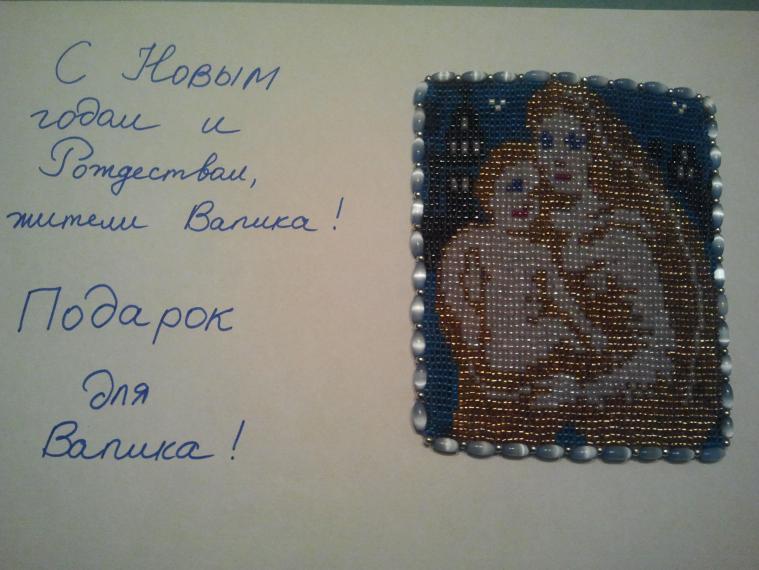 С Новым
годом и
Рождеством,
жители Вапика!
Подарок
для
Вапика!